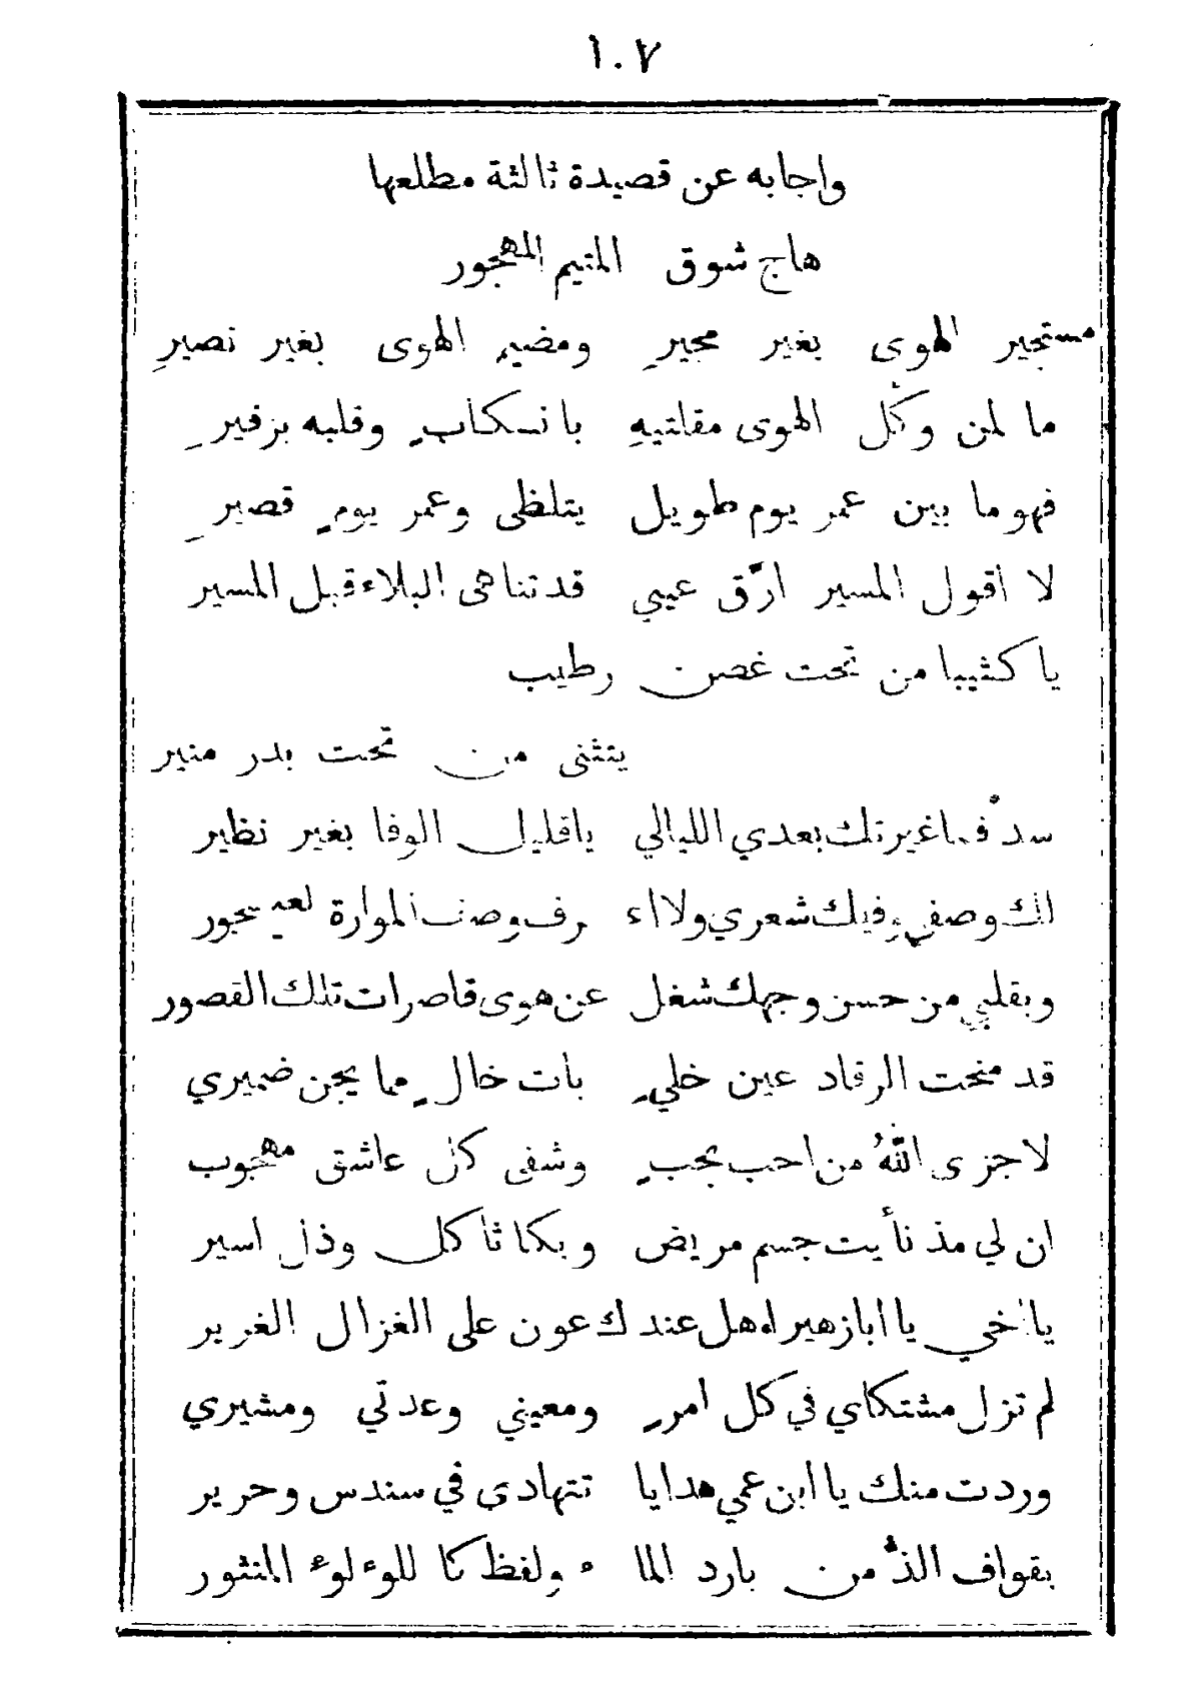 ١٠٧
واجابه عن قصيدة ثالثة مطلعها
هاج شوق المتيم المهجور
مستجير الهوى بغير مجيرِ ومضيم الهوى بغير نصيرِ
ما لمن وكّل الهوى مقلتيهِ بانسكابٍ وقلبه بزفيرِ
فهو ما بين عمر يوم طويل يتلظى وعمر يومٍ قصيرِ
لا اقول المسير ارّق عيني قد تناهى البلاء قبل المسير
يا كثيبا من تحت غصن رطيب
يتثنى من تحت بدر منير
سدْ فما غيرتك بعدي الليالي ياقليل الوفا بغير نظير
لك وصفي وفيك شعري ولا اء رف وصف الموارة
وبقلبي من حسن وجهك شغل عن هوى قاصرات تلك القصور
قد منحت الرقاد عين خليٍ بات خالٍ مما يجن ضميري
لاجزى اللهُ من احب بحبٍ وشفى كل عاشق مهجوب
ان لي مذ نأيت جسم مريض وبكا ثاكل وذل اسير
يااخي يا ابا زهير اه هل عندك عون على الغزال الغرير
لم تزل مشتكاي في كل امرٍ ومعيني وعدتي ومشيري
وردت منك يا ابن عمي هدايا تتهادى في سندس وحرير
بقواف الذّ من بارد الما ء ولفظ كا للوءلوء المنثور